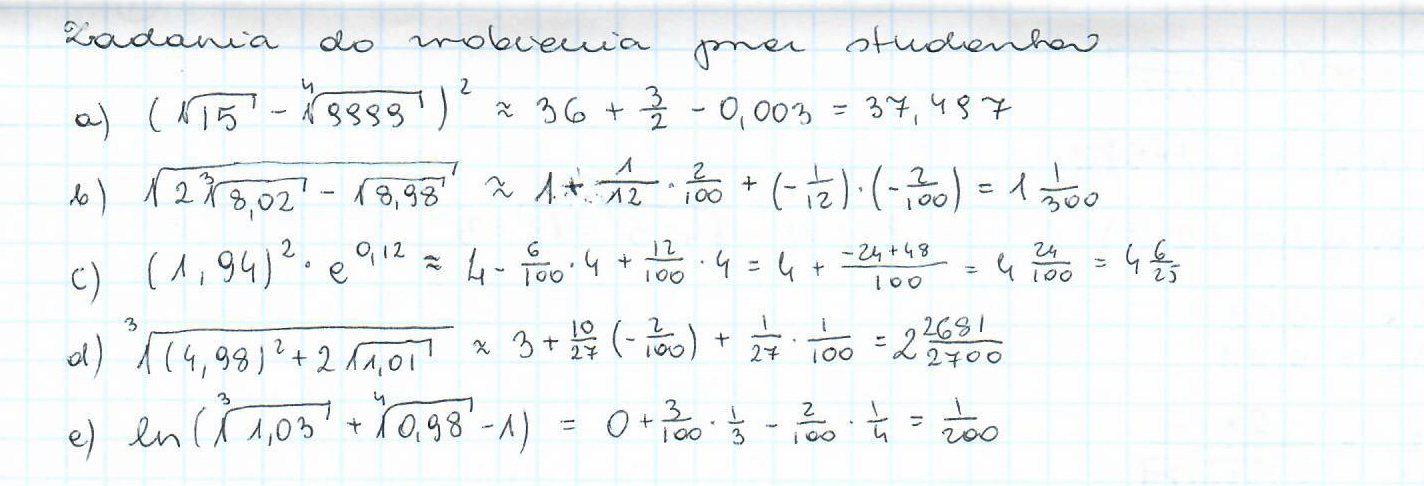 Zadania do zrobienia przez studentów
a) (√15 - ∜9999)² ≈ 36 + 3/2 - 0,003 = 37,497
b) √(2∛8,02 - √8,98) ≈ 1 + 1/12 · 2/100 + (-1/12)·(-2/100) = 1 1/300
c) (1,94)² · e^0,12 ≈ 4 - 6/100 · 4 + 12/100 · 4 = 4 + (-24+48)/100 = 4 24/100 = 4 6/25
d) ∛((4,98)² + 2√1,01) ≈ 3 + 10/27 (-2/100) + 1/27 · 1/100 = 2 2681/2700
e) ln(∛1,03 + ∜0,98 - 1) = 0 + 3/100 · 1/3 - 2/100 · 1/4 = 1/200